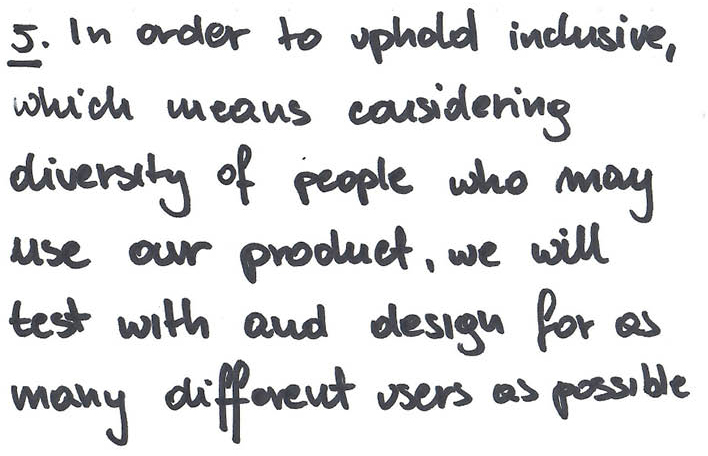 5. In order to uphold inclusive,
which means considering
diversity of people who may
use our product, we will
test with and design for as
many different users as possible